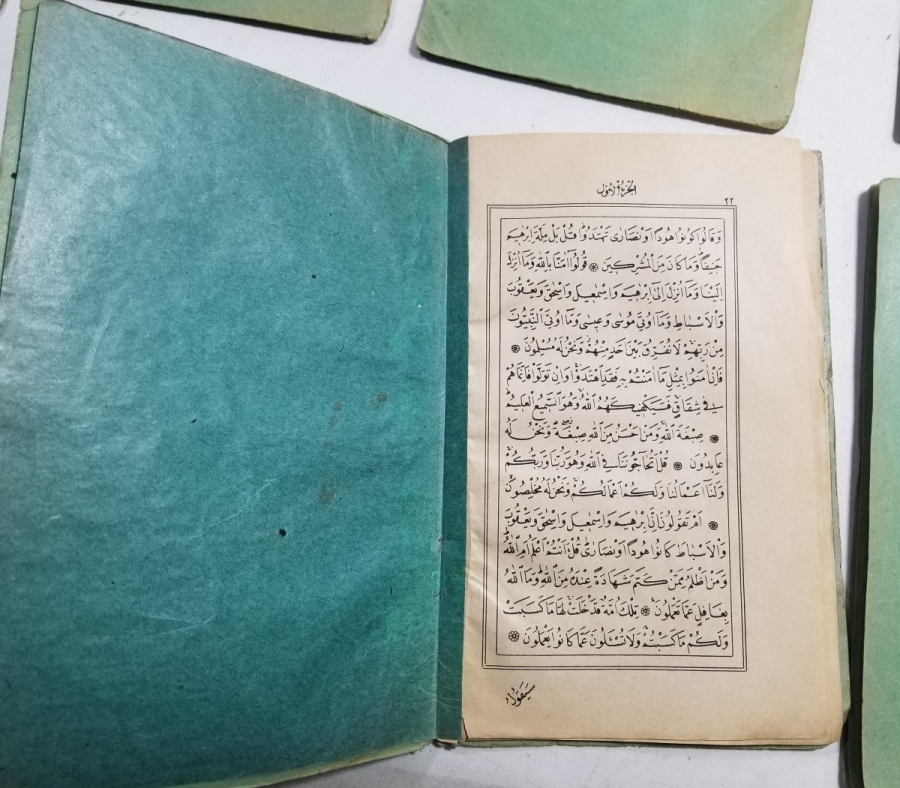 الجزء الاول
٢٢
وَقَالُوا كُونُوا هُودًا اَوْ نَصَارٰى تَهْتَدُوا قُلْ بَلْ مِلَّةَ اِبْرٰهٖيمَ
حَنِيفًا وَمَا كَانَ مِنَ الْمُشْرِكٖينَ ۞ قُولُوا اٰمَنَّا بِاللّٰهِ وَمَا اُنْزِلَ
اِلَيْنَا وَمَا اُنْزِلَ اِلٰى اِبْرٰهٖيمَ وَاِسْمٰعٖيلَ وَاِسْحٰقَ وَيَعْقُوبَ
وَالْاَسْبَاطِ وَمَا اُوتِىَ مُوسٰى وَعٖيسٰى وَمَا اُوتِىَ النَّبِيُّونَ
مِنْ رَبِّهِمْ لَا نُفَرِّقُ بَيْنَ اَحَدٍ مِنْهُمْ وَنَحْنُ لَهُ مُسْلِمُونَ ۞
فَاِنْ اٰمَنُوا بِمِثْلِ مَا اٰمَنْتُمْ بِهٖ فَقَدِ اهْتَدَوْا وَاِنْ تَوَلَّوْا فَاِنَّمَا هُمْ
فٖى شِقَاقٍ فَسَيَكْفٖيكَهُمُ اللّٰهُ وَهُوَ السَّمٖيعُ الْعَلٖيمُ
۞ صِبْغَةَ اللّٰهِ وَمَنْ اَحْسَنُ مِنَ اللّٰهِ صِبْغَةً وَنَحْنُ لَهُ
عَابِدُونَ ۞ قُلْ اَتُحَاجُّونَنَا فِى اللّٰهِ وَهُوَ رَبُّنَا وَرَبُّكُمْ
وَلَنَا اَعْمَالُنَا وَلَكُمْ اَعْمَالُكُمْ وَنَحْنُ لَهُ مُخْلِصُونَ
۞ اَمْ تَقُولُونَ اِنَّ اِبْرٰهٖيمَ وَاِسْمٰعٖيلَ وَاِسْحٰقَ وَيَعْقُوبَ
وَالْاَسْبَاطَ كَانُوا هُودًا اَوْ نَصَارٰى قُلْ ءَاَنْتُمْ اَعْلَمُ اَمِ اللّٰهُ
وَمَنْ اَظْلَمُ مِمَّنْ كَتَمَ شَهَادَةً عِنْدَهُ مِنَ اللّٰهِ وَمَا اللّٰهُ
بِغَافِلٍ عَمَّا تَعْمَلُونَ ۞ تِلْكَ اُمَّةٌ قَدْ خَلَتْ لَهَا مَا كَسَبَتْ
وَلَكُمْ مَا كَسَبْتُمْ وَلَا تُسْئَلُونَ عَمَّا كَانُوا يَعْمَلُونَ ۞
سَيَقُولُ